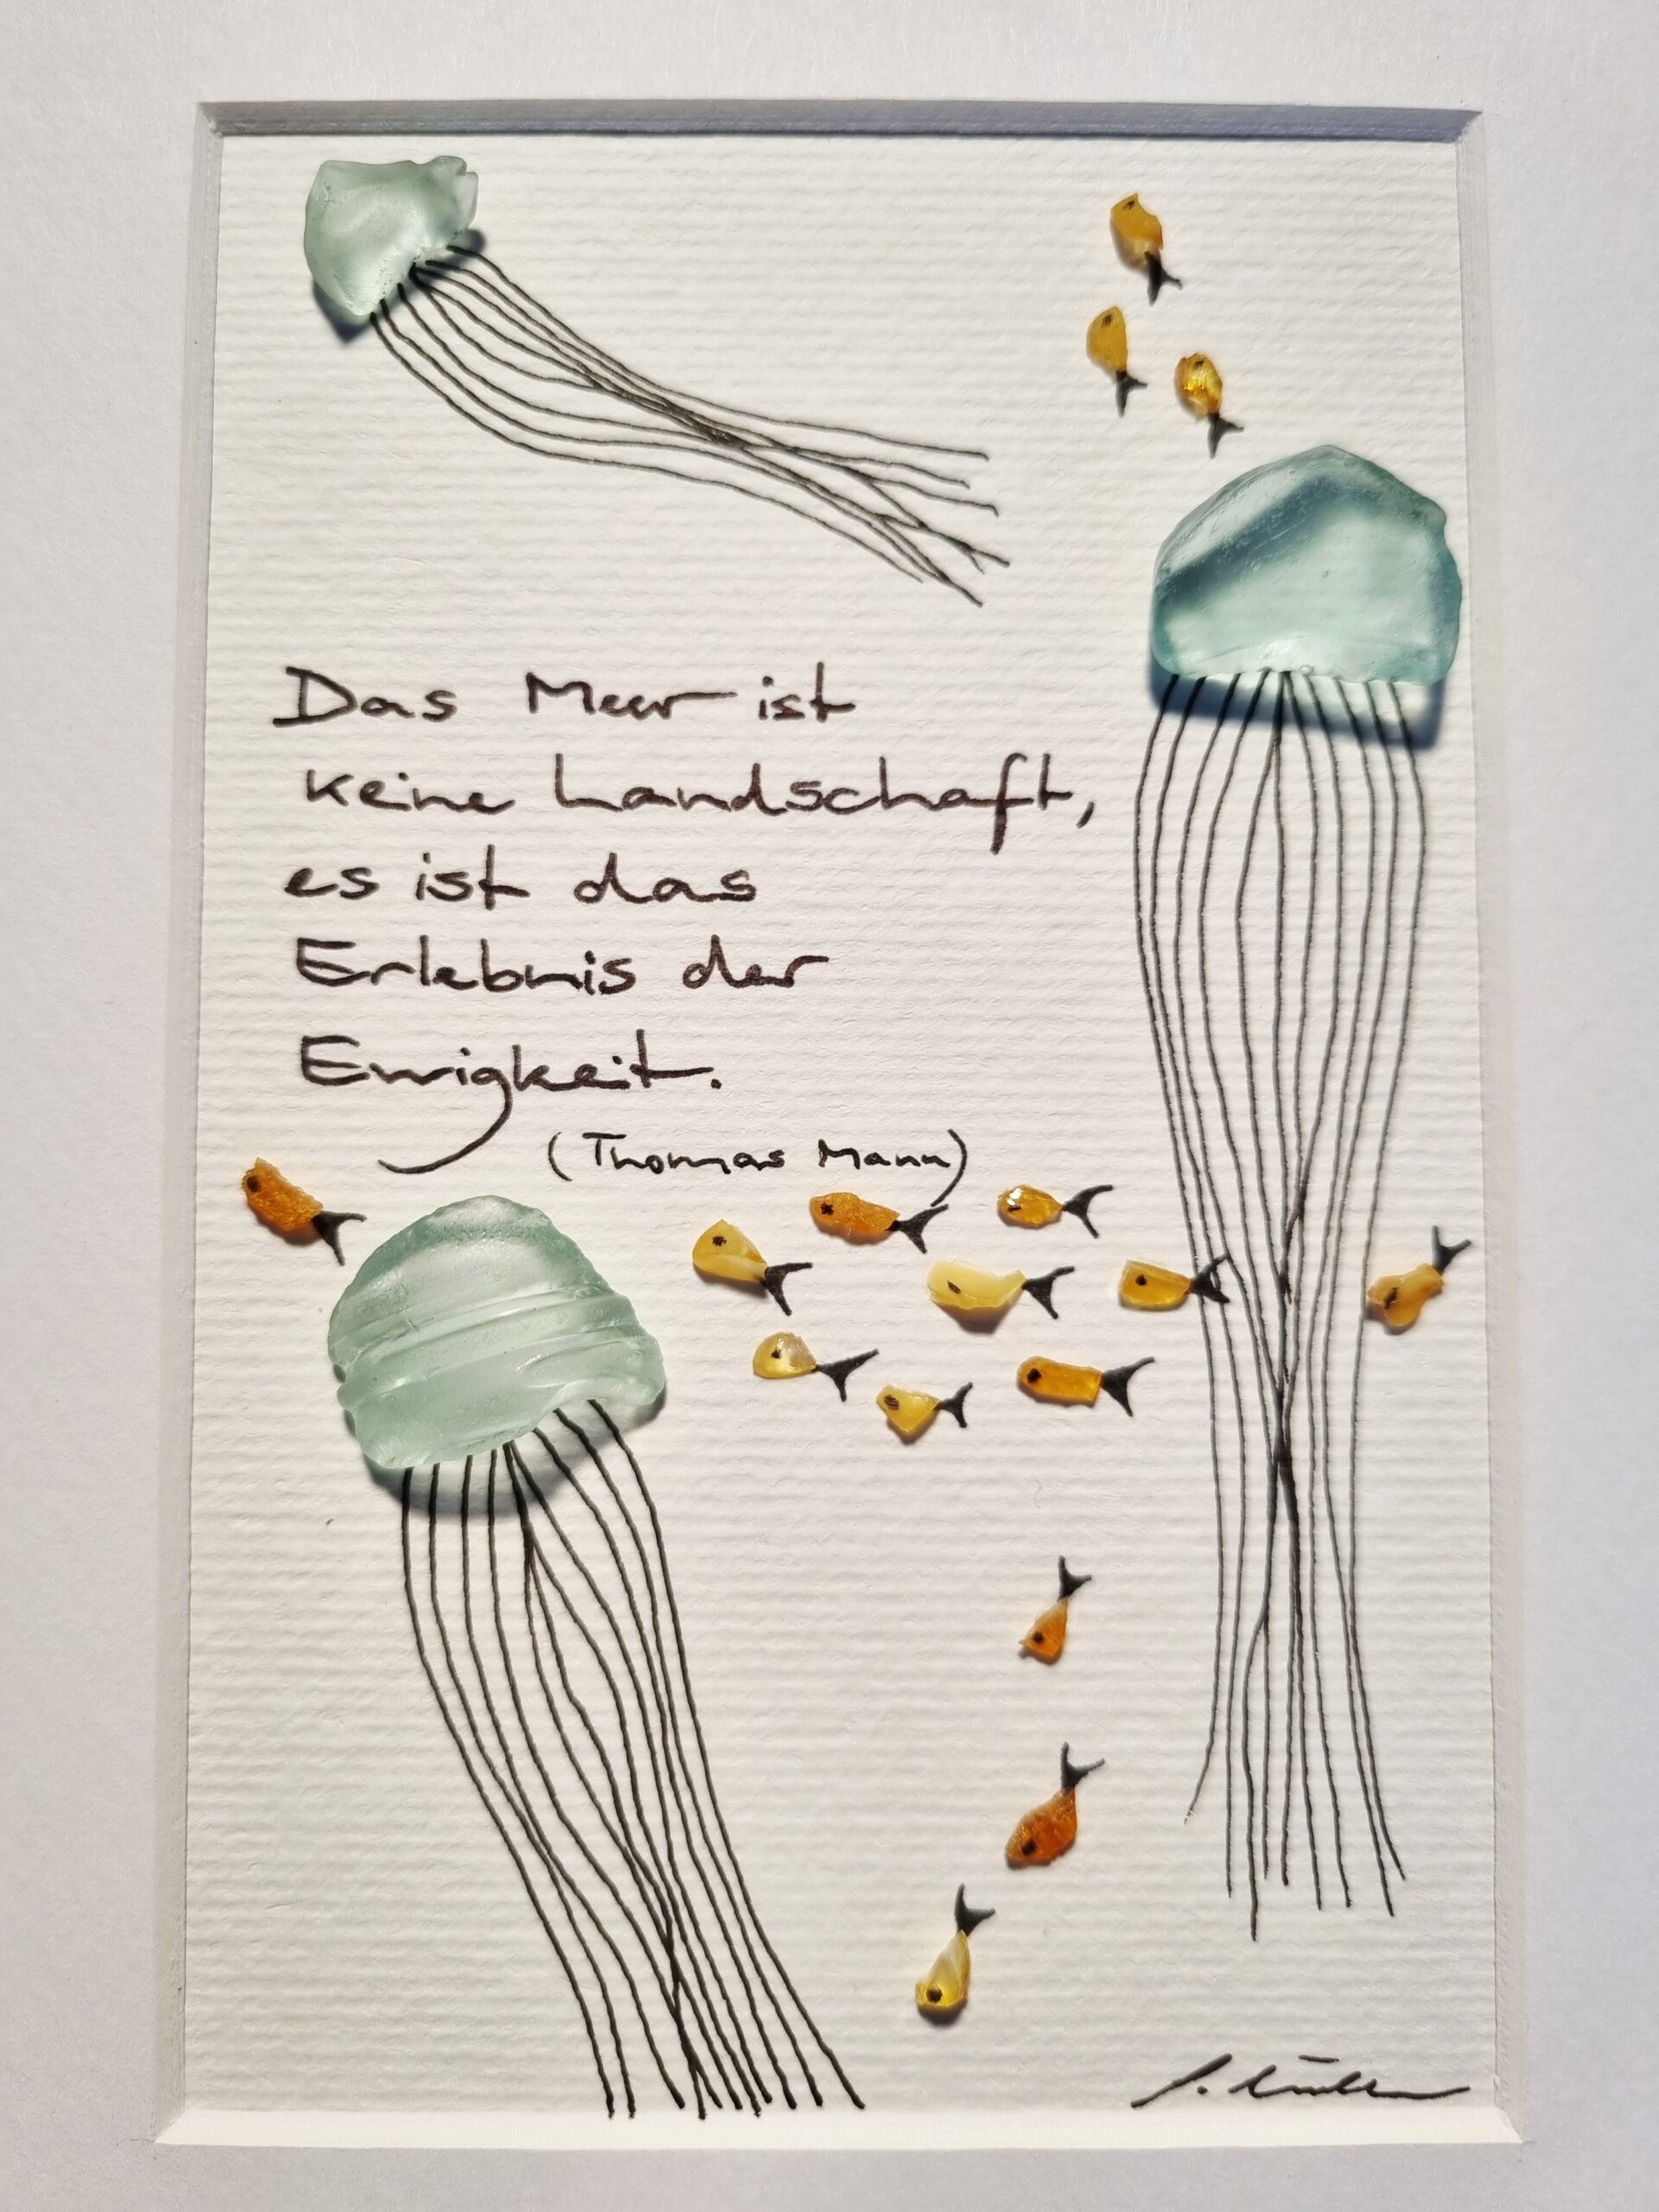 Das Meer ist
keine Landschaft,
es ist das
Erlebnis der
Ewigkeit.
(Thomas Mann)